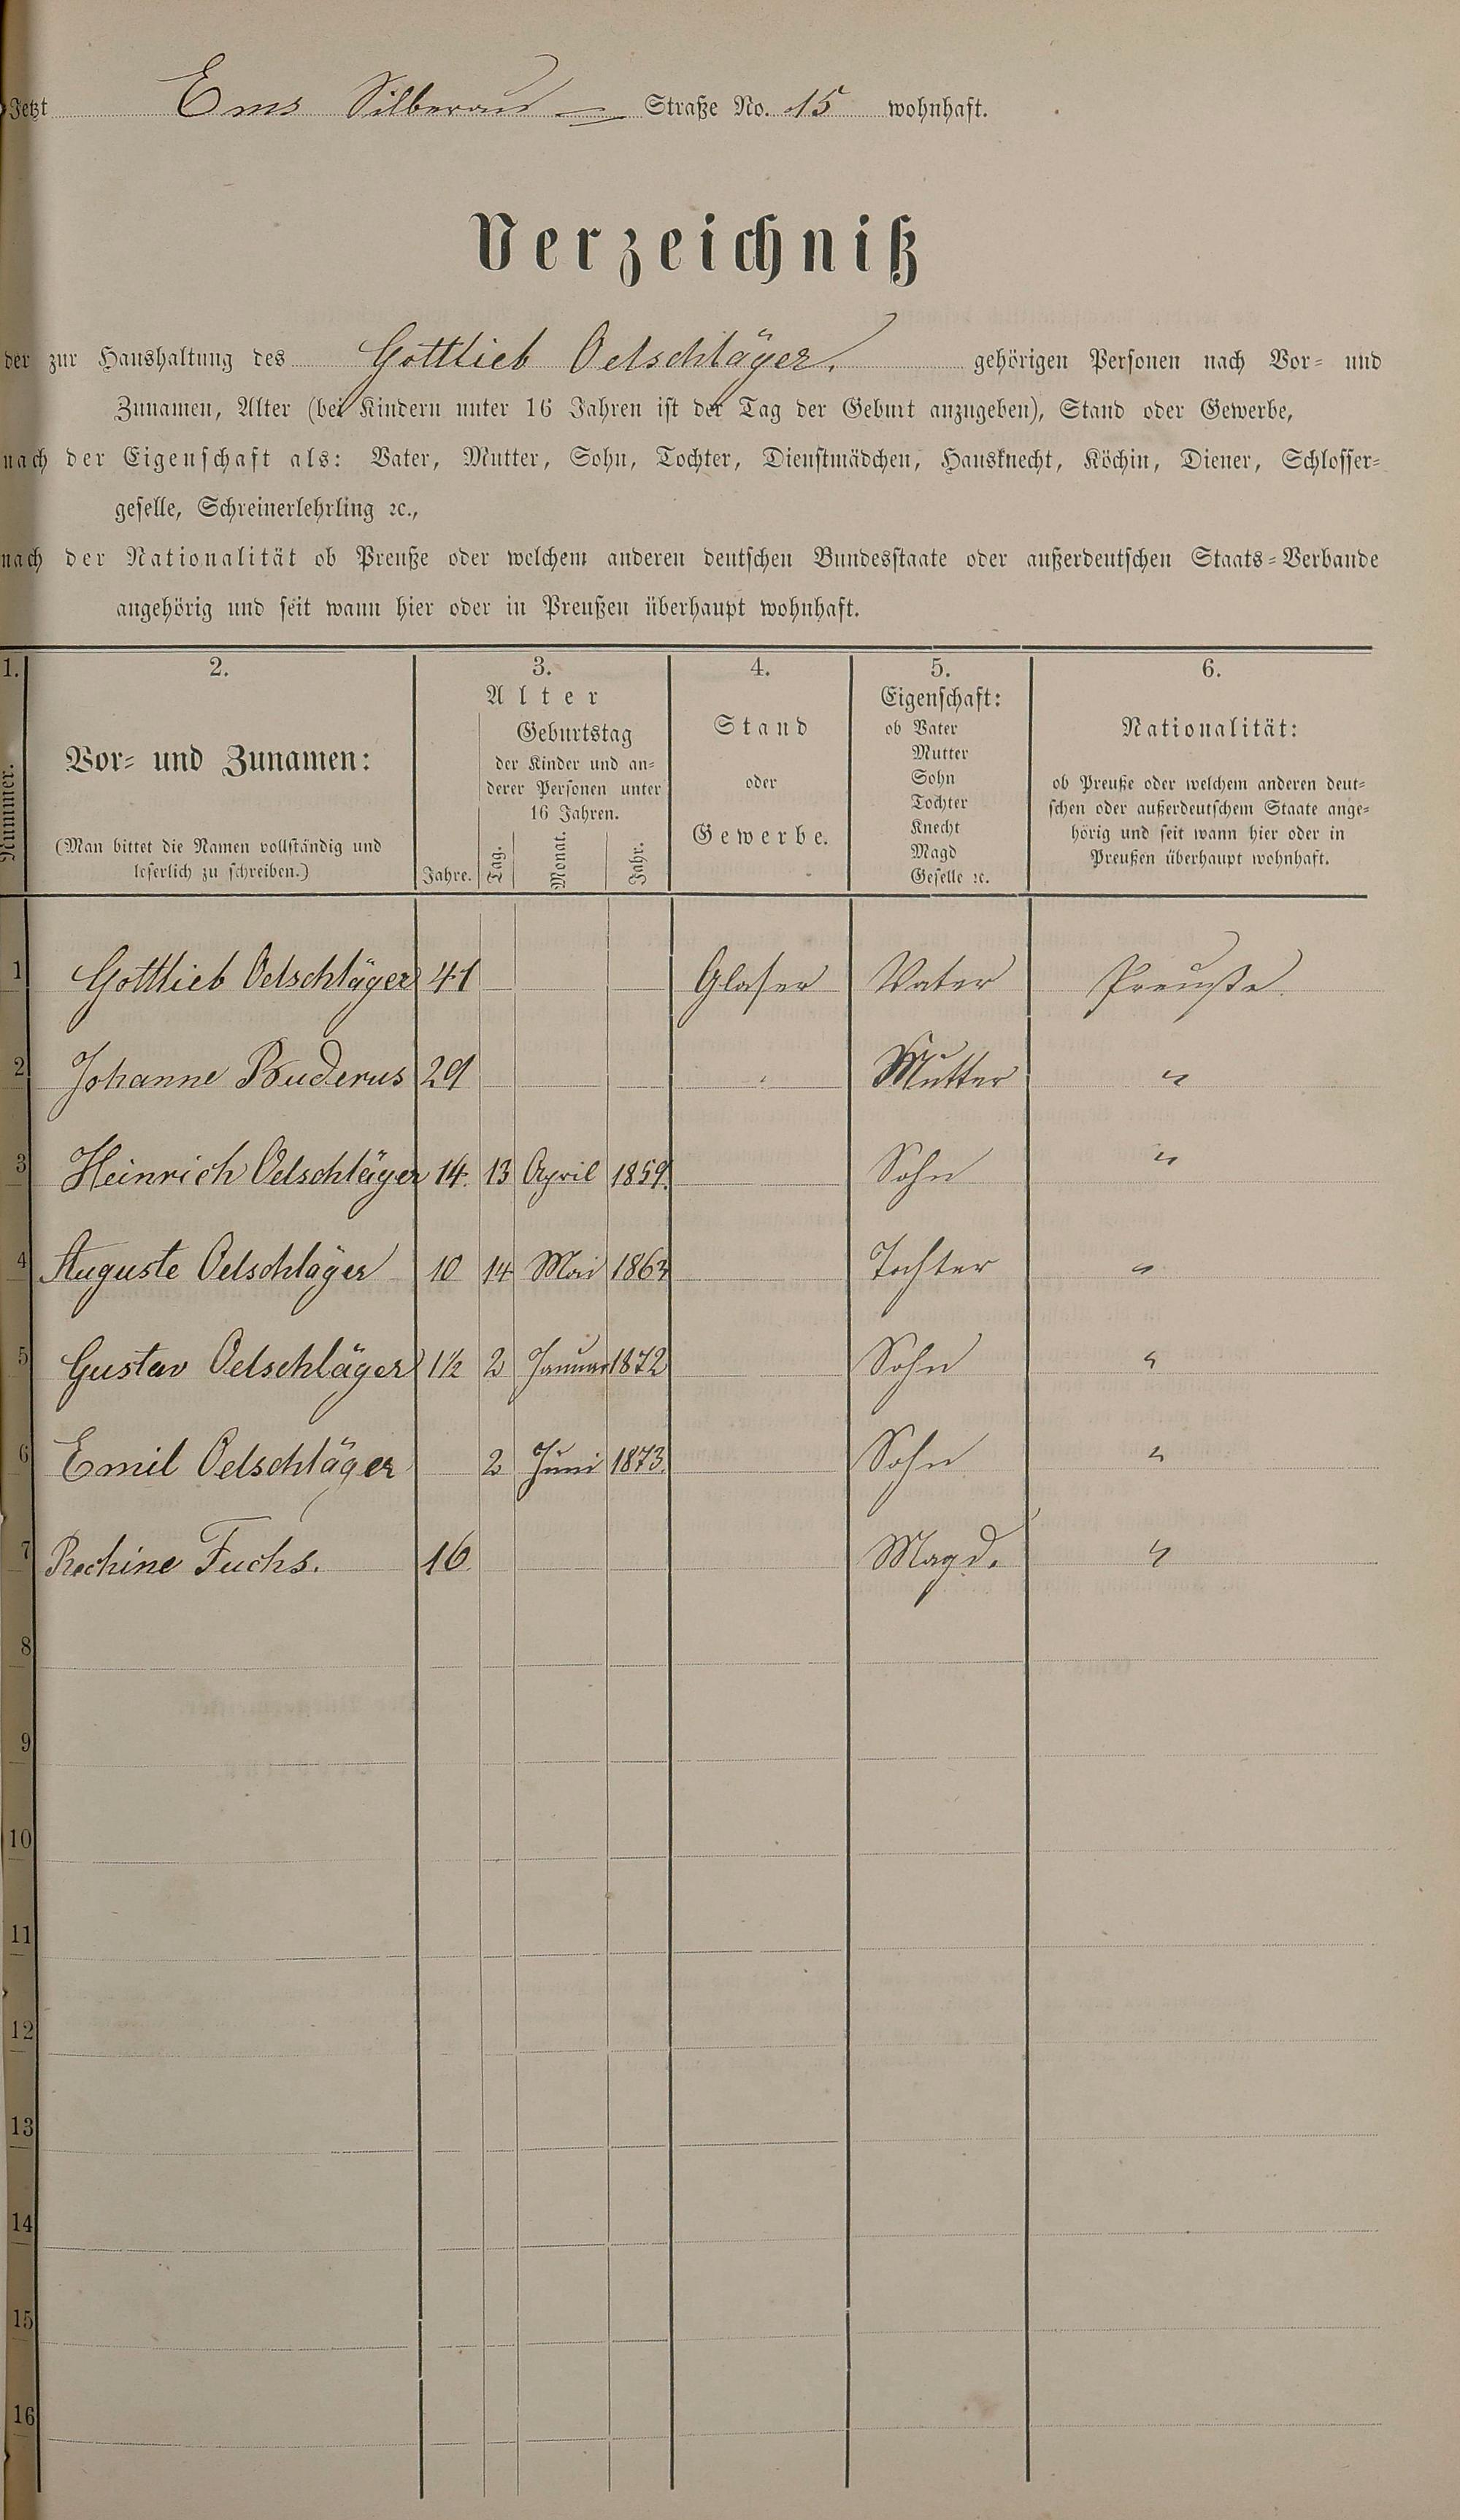 Jetzt Ems Silberau Straße No. 15 wohnhaft.
Verzeichniß
der zur Haushaltung des Gottlieb Oelschläger. gehörigen Personen nach Vor- und
Zunamen, Alter (bei Kindern unter 16 Jahren ist der Tag der Geburt anzugeben), Stand oder Gewerbe,
nach der Eigenschaft als: Vater, Mutter, Sohn, Tochter, Dienstmädchen, Hausknecht, Köchin, Diener, Schlosser-
geselle, Schreinerlehrling ꝛc.,
nach der Nationalität ob Preuße oder welchem anderen deutschen Bundesstaate oder außerdeutschen Staats-Verbande
angehörig und seit wann hier oder in Preußen überhaupt wohnhaft.
1.
Nummer.
2.
Vor- und Zunamen:
(Man bittet die Namen vollständig und
leserlich zu schreiben.)
3.
Alter
Jahre.
Geburtstag
der Kinder und an-
derer Personen unter
16 Jahren.
Tag. Monat. Jahr.
4.
Stand
oder
Gewerbe.
5.
Eigenschaft:
ob Vater
Mutter
Sohn
Tochter
Knecht
Magd
Geselle ꝛc.
6.
Nationalität:
ob Preuße oder welchem anderen deut-
schen oder außerdeutschem Staate ange-
hörig und seit wann hier oder in
Preußen überhaupt wohnhaft.
1 Gottlieb Oelschläger 41 Glaser Vater Preuße.
2 Johanne Buderus 29 Mutter "
3 Heinrich Oelschläger 14. 13 April 1859. Sohn "
4 Auguste Oelschläger 10 14 Mai 1863 Tochter "
5 Gustav Oelschläger 1½ 2 Januar 1872 Sohn "
6 Emil Oelschläger 2 Juni 1873. Sohn "
7 Fuchs. 16. Magd. "
8
9
10
11
12
13
14
15
16